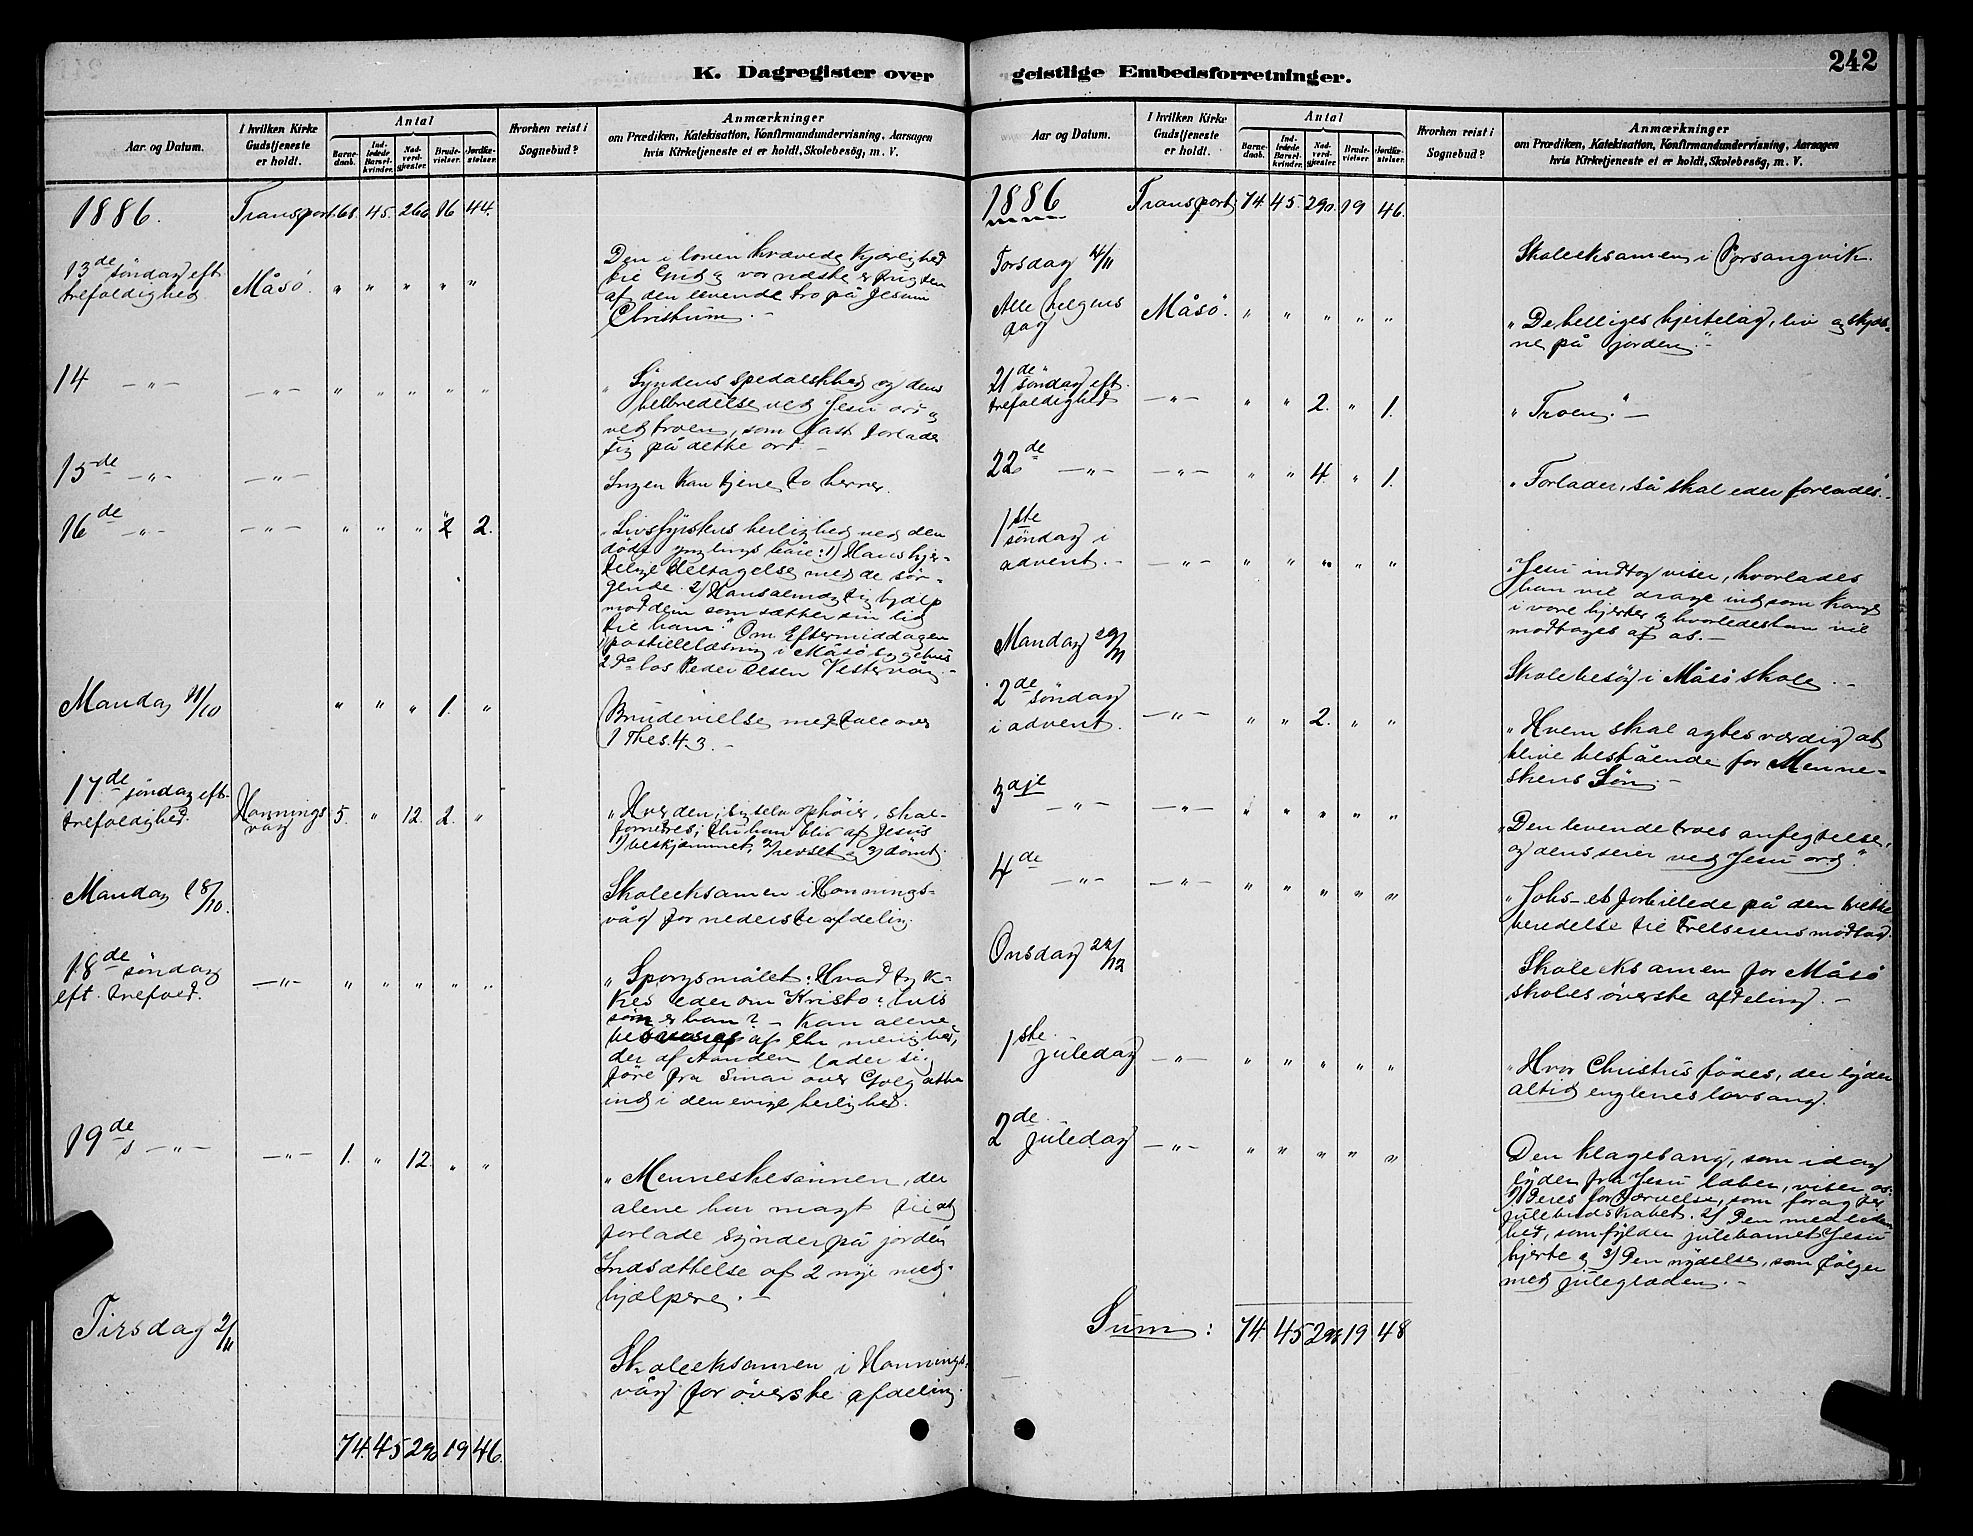 242
K. Dagregister over
geistlige Embedsforretninger.
Aar og Datum.
I hvilken Kirke
Gudstjeneste
er holdt.
Antal
Barne-
daab.
Ind-
ledede
Barsel-
kvinder.
Nad-
verd-
gjester.
Brude-
vielser.
Jordfæ-
stelser.
Hvorhen reist i
Sognebud?
Anmærkninger
om Prædiken, Katekisation, Konfirmandundervisning, Aarsagen
hvis Kirketjeneste ei er holdt, Skolebesög, m. V.
1886. Transport. 68. 45. 266 16 44.
13de söndag eft.
trefoldighed Måsö. " " " " "
Den i loven krævede kjærlighed
til Gud og vor næste er frugten
af den levende tro på Jesum
Christum. -
14 - " - - " - " " " " "
" Syndens spedalskhed og dens
helbredelse ved Jesu ord og
ved troen, som fast forlader
sig på dette ord. -
15de - " - - " -
Ingen kan tjene to herrer.
16de - " - - " - " " " 2 2.
" Livsfyrstens herlighed ved den
døde ynglings båre: 1) Hans hjer-
telige deltagelse med de sör-
gende. 2) Hans almægtig hjælp
mod dem som sætter sin lid
til ham." Om Eftermiddagen
1) postillelæsning i Måsö
hos Peder Olsen Vestervåg. -
Mandag 11/10 " " " 1. "
Brudevielse med tale over
1 Thes. 4. 3. -
17de söndag eft.
trefoldighed Honnings
våg 5. " 12. 2. "
" Hver den, sig selv ophöier, skal
fornedres; thi han blir af Jesus
1) beskjæmmet, 2) revset og 3) dömt.
Mandag 18/10.
Skoleeksamen i Honnings-
våg for nederste afdeling.
18de söndag
eft. trefold. - " - " " " " "
" Spörgsmålet: Hvad tyk-
kes eder om Kristo? hvis
sön er han? - kan alene
besvares af en menighed,
der af Aanden lader sig
före fra Sinai over Golgatha
ind i den evige herlighed.
19de s - " - - " - 1. " 12 " "
" Menneskesönnen, der
alene har magt til at
forlade synder på jorden
Indsættelse af 2 nye med-
hjælpere. -
Tirsdag 2/11
Skoleeksamen i Honnings-
våg for överste afdeling.
74. 45 290 19 46.
Aar og Datum.
I hvilken Kirke
Gudstjeneste
er holdt.
Antal
Barne-
daab.
Ind-
ledede
Barsel-
kvinder.
Nad-
verd-
gjester.
Brude-
vielser.
Jordfæ-
stelser.
Hvorhen reist i
Sognebud?
Anmærkninger
om Prædiken, Katekisation, Konfirmandundervisning, Aarsagen
hvis Kirketjeneste ei er holdt, Skolebesög, m. V.
1886 Transport 74. 45. 290. 19 46.
Torsdag 4/11
Skoleeksamen i Porsangvik.
Alle helgens
dag Måsö. " " " " "
" De helliges hjertelag, liv og skjæb-
ne på jorden." -
21de söndag eft.
trefoldighed - " - " " 2. " 1.
" Troen." -
22de - " - - " - " " 4. " 1.
" Forlader, så skal eder forlades." -
1ste
söndag i
advent. - - " - " " " " "
" Jesu indtog viser, hvorledes
han vil drage ind som konge
i vore hjerter og hvorledes han vil
modtages af os. -
Mandag 29/11
Skolebesög i Måsö skole. -
2de söndag
i advent. - " - " " 2. " "
" Hvem skal agtes værdig at
blive bestående for Menne-
skens Sön. -
3dje - " - - " - " " " " "
" Den levende troes anfegtelse,
og dens seier ved Jesu ord".
4de - " - - " - " " " " "
" Johs - et forbillede på den rette
beredelse til Frelserens modtag.
Onsdag 22/12
Skoleeksamen for Måsö
skoles överste afdeling. -
1ste
juledag - " - " " " " "
" Hvor Christus födes, der lyder
altid englenes lovsang.
2de
juledag - " - " " " " "
Den klagesang, som idag
lyder fra Jesu læber, viser os:
1) Deres fordærvelse, som foragter
julebudskabet. 2) Den medliden
hed, som fylder julebarnet Jesu
hjerte og 3) Den nydelse, som fölger
med juleglæden. -
Sum: 74. 45 296 19 48